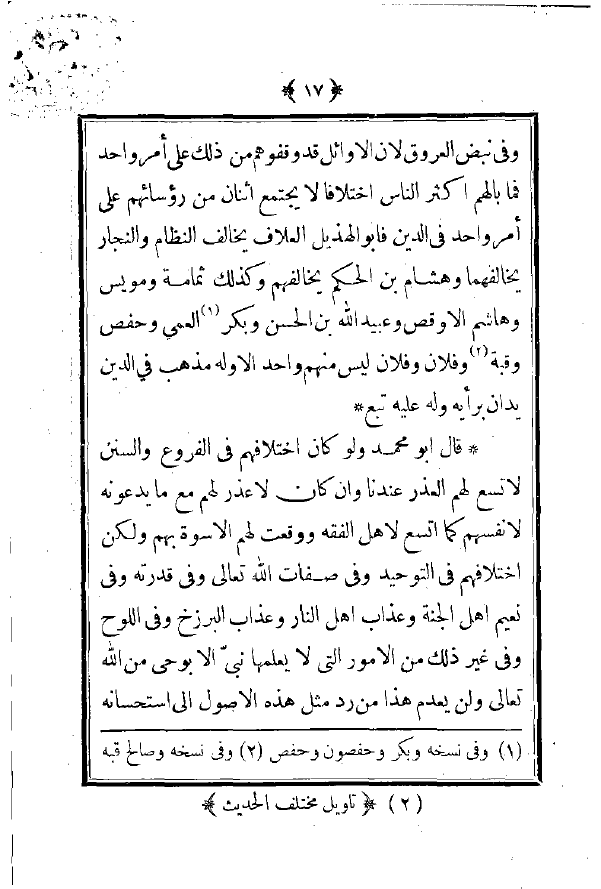 ﴿ ١٧ ﴾
وفى نبض العروق لان الاوائل قد وقفوهم من ذلك على أمر واحد
فما بالهم اكثر الناس اختلافا لا يجتمع اثنان من رؤسائهم على
أمر واحد فى الدين فابو الهذيل العلاف يخالف النظام والنجار
يخالفهما وهشام بن الحكم يخالفهم وكذلك ثمامة ومويس
وهاشم الاوقص وعبيد الله بن الحسن وبكر (١) العمي وحفص
وقبة (٢) وفلان وفلان ليس منهم واحد الاوله مذهب في الدين
يدان برأيه وله عليه تبع *
* قال ابو محمد ولو كان اختلافهم فى الفروع والسنن
لاتسع لهم العذر عندنا وان كان لاعذر لهم مع ما يدعونه
لانفسهم كما اتسع لاهل الفقه ووقعت لهم الاسوة بهم ولكن
اختلافهم فى التوحيد وفى صفات الله تعالى وفى قدرته وفى
نعيم اهل الجنة وعذاب اهل النار وعذاب البرزخ وفى اللوح
وفى غير ذلك من الامور التى لا يعلمها نبىّ الا بوحى من الله
تعالى ولن يعدم هذا من رد مثل هذه الاصول الى استحسانه
(١) وفى نسخه وبكر وحفصون وحفص (٢) وفى نسخه وصالح قبه
(٢) ﴿ تاويل مختلف الحديث ﴾